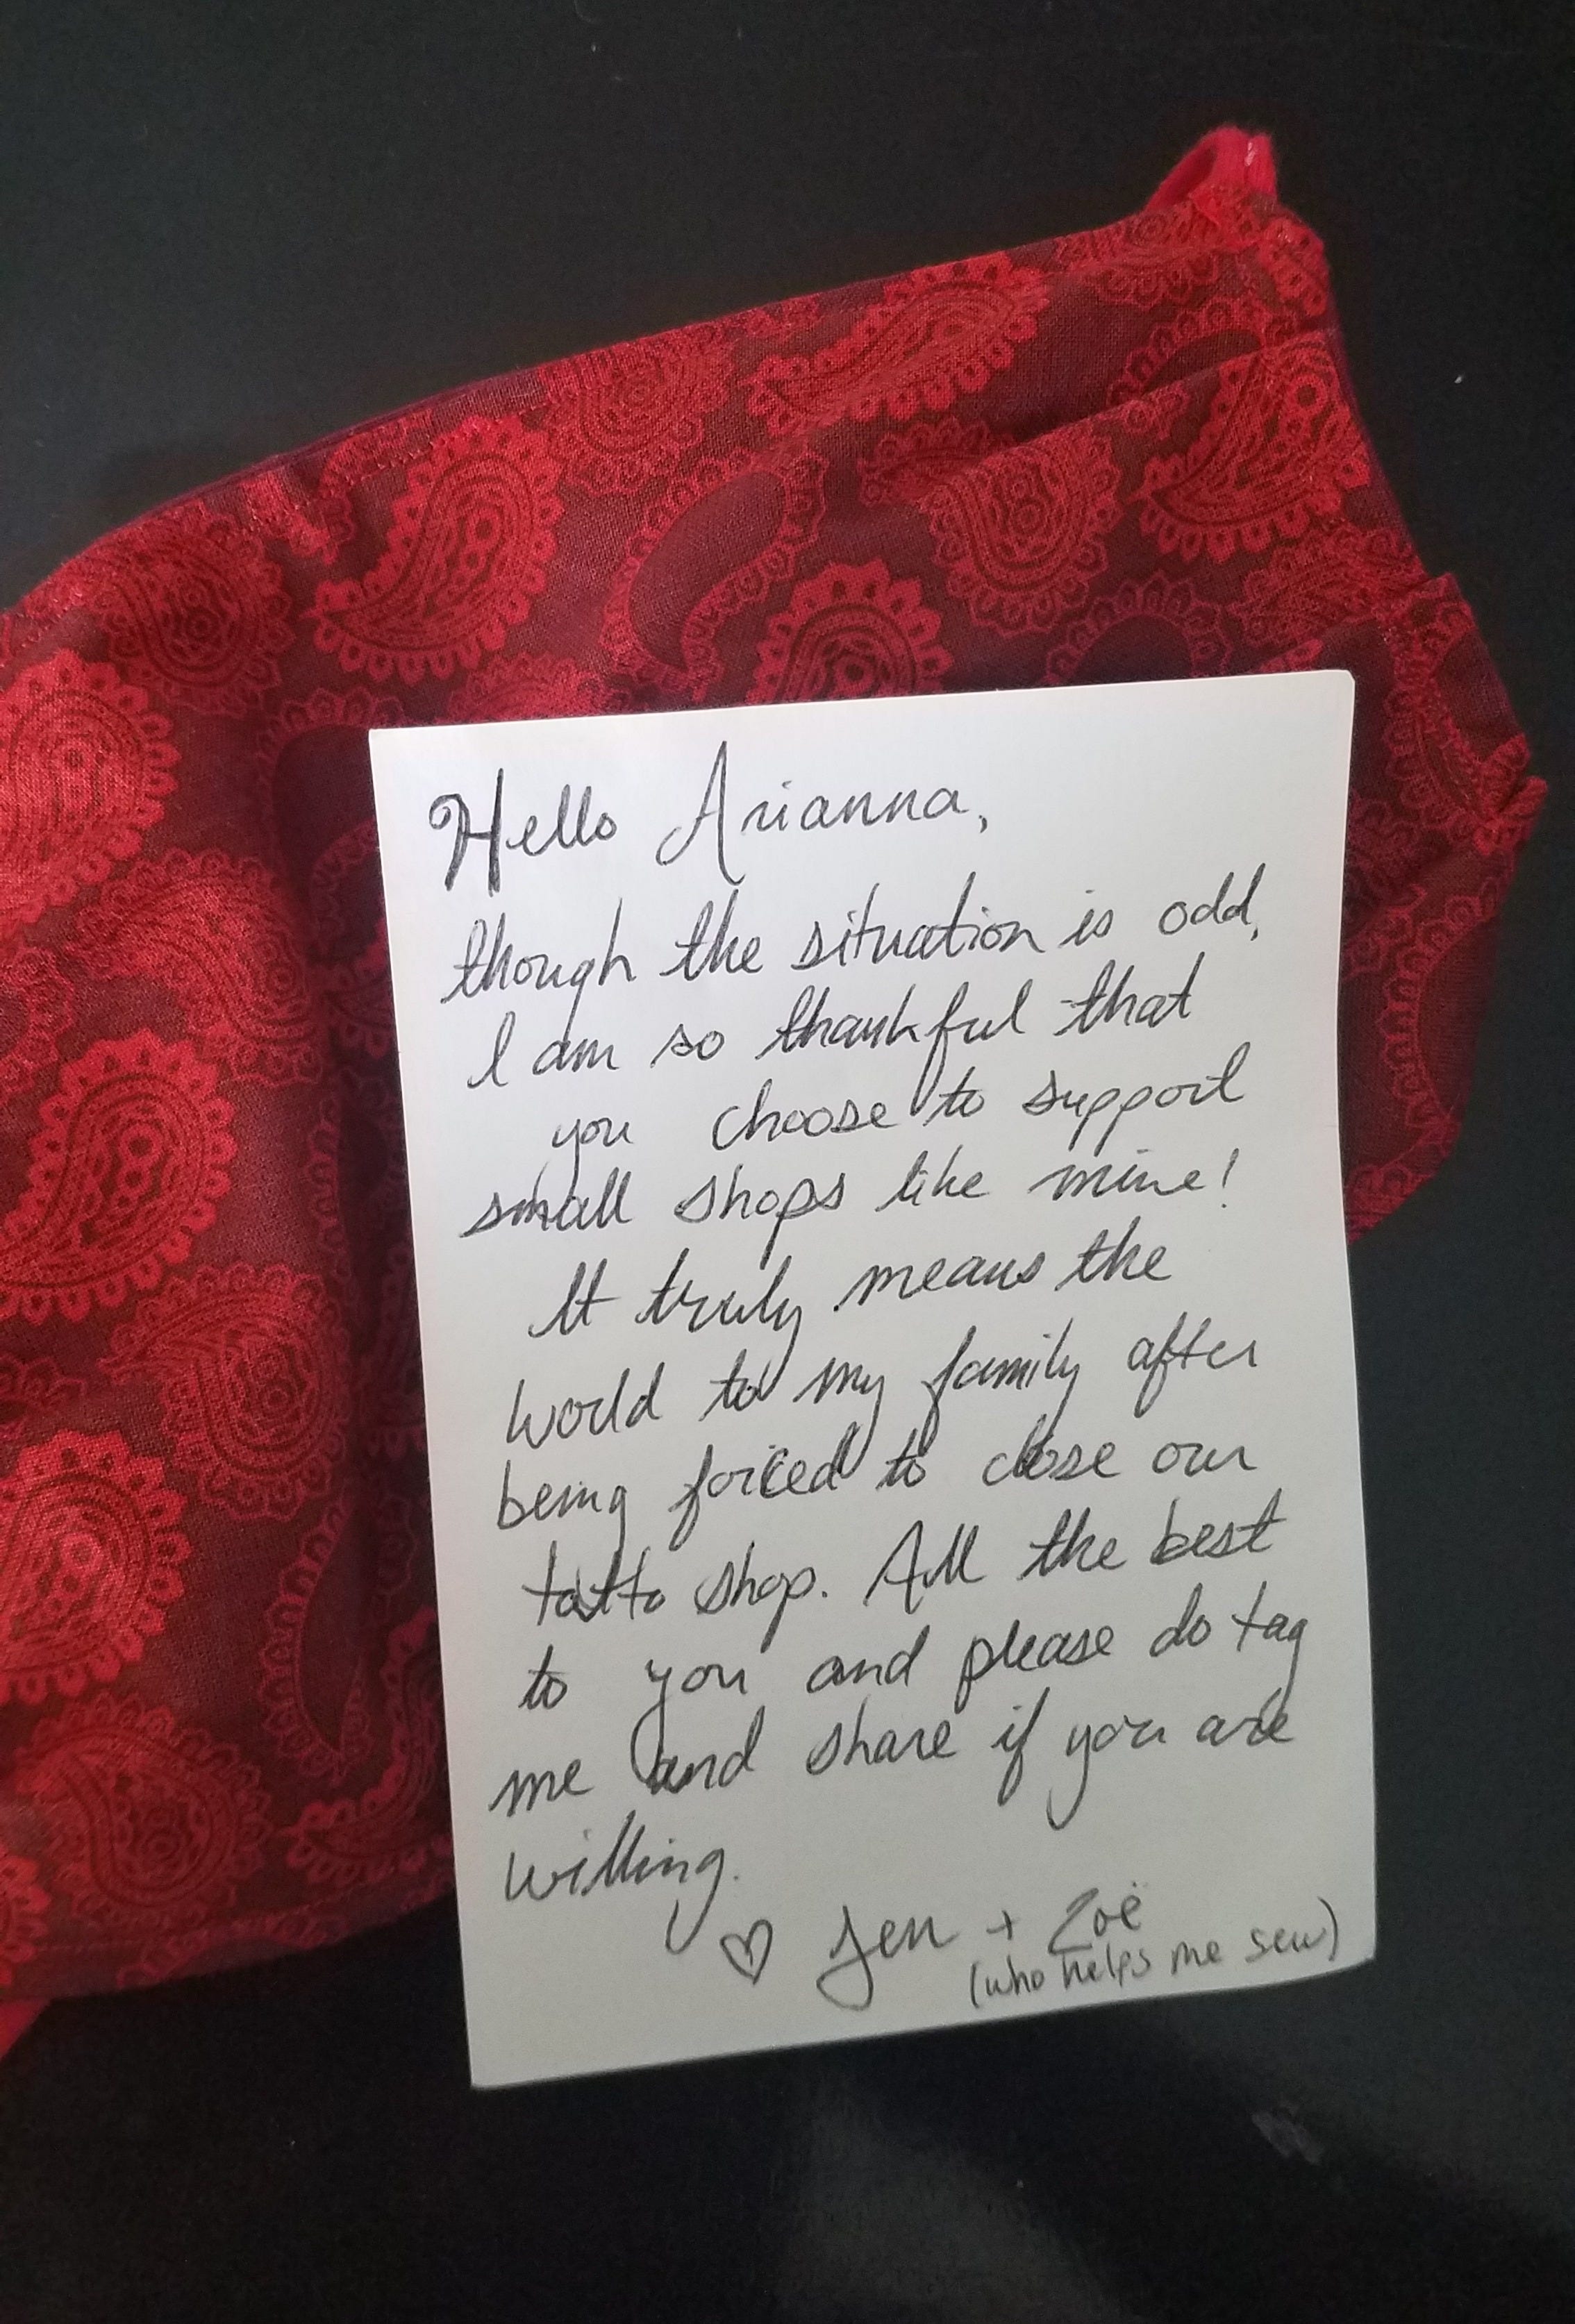 Hello Arianna,
though the situation is odd,
I am so thankful that
you choose to support
small shops like mine!
It truly means the
world to my family after
being forced to close our
tatto shop. All the best
to you and please do tag
me and share if you are
willing.
♡ Jen + Zoë
(who helps me sew)